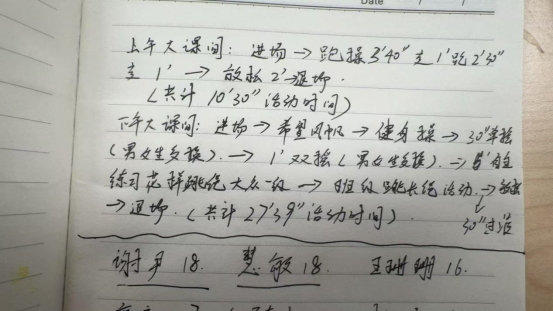 Date
上午大课间：进场→跑操3′40″走1′跑2′30″
走1′→放松2′→退场.
(共计10′30″活动时间)
下午大课间：进场→希望风帆→健身操→30″单摇
(男女生交换).→1′双摇(男女生交换).→自主
练习花样跳绳大众一级→班级跳长绳活动.→放松
→退场.(共计27′39″活动时间).
谢尹18. 慧敏18. 王珊珊16.